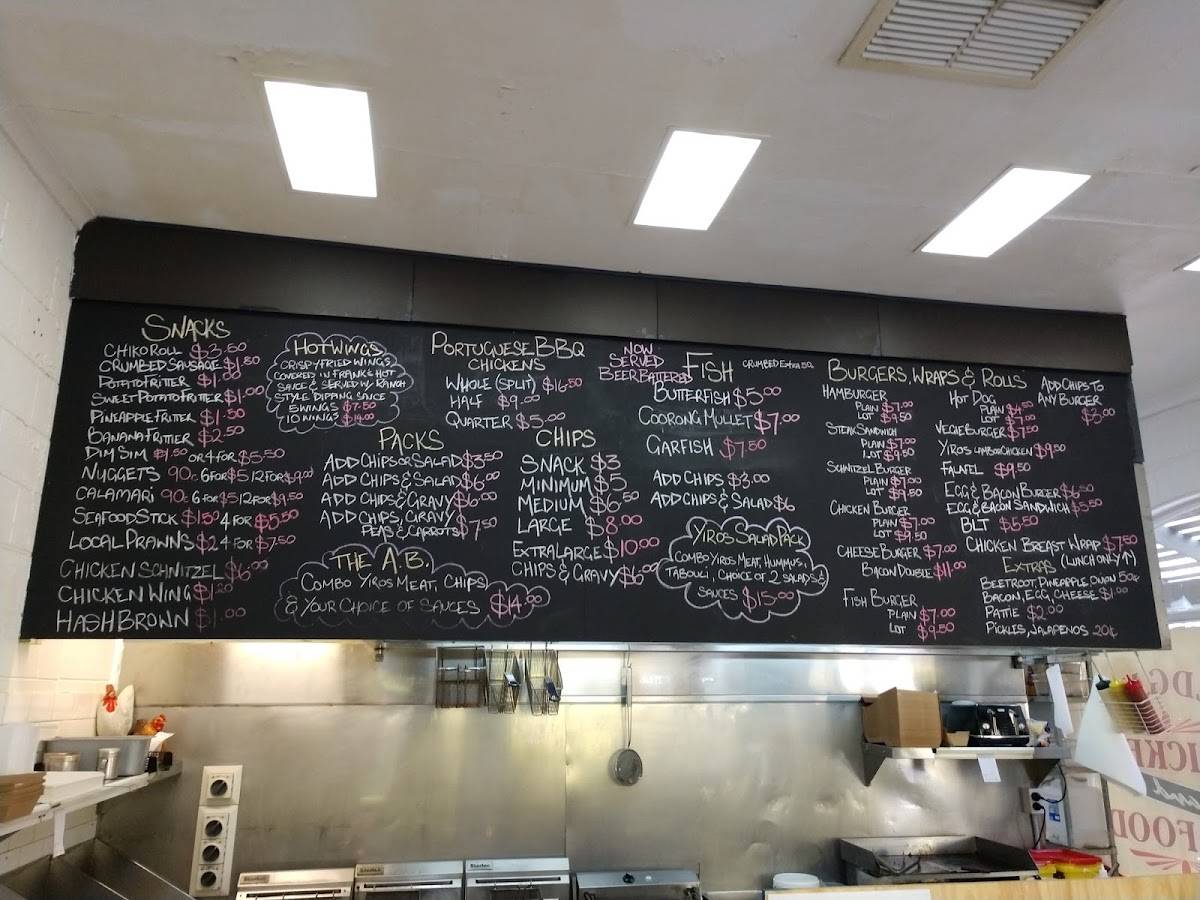 SNACKS
CHIKO ROLL $3.50
CRUMBED SAUSAGE $1.80
POTATO FRITTER $1.00
SWEET POTATO FRITTER $1.00
PINEAPPLE FRITTER $1.50
BANANA FRITTER $2.50
DIM SIM $1.50 OR 4 FOR $5.50
NUGGETS 90c 6 FOR $5 12 FOR $9.00
CALAMARI 90c 6 FOR $5 12 FOR $9.50
SEAFOOD STICK $1.50 4 FOR $5.50
LOCAL PRAWNS $2 4 FOR $7.50
CHICKEN SCHNITZEL $6.00
CHICKEN WING $1.20
HASH BROWN $1.00
HOT WINGS
CRISPY FRIED WINGS
COVERED IN FRANKS HOT
SAUCE & SERVED W/ RANCH
STYLE DIPPING SAUCE
5 WINGS $7.50
10 WINGS $14.00
PACKS
ADD CHIPS OR SALAD $3.50
ADD CHIPS & SALAD $6.00
ADD CHIPS & GRAVY $6.00
ADD CHIPS, GRAVY
PEAS & CARROTS $7.50
THE A.B.
COMBO YIROS MEAT, CHIPS,
& YOUR CHOICE OF SAUCES $14.00
PORTUGUESE BBQ
CHICKENS
WHOLE (SPLIT) $16.50
HALF $9.00
QUARTER $5.00
CHIPS
SNACK $3
MINIMUM $5
MEDIUM $6.50
LARGE $8.00
EXTRA LARGE $10.00
CHIPS & GRAVY $6.00
NOW
SERVED
BEER BATTERED
FISH CRUMBED EXTRA 50
BUTTERFISH $5.00
COORONG MULLET $7.00
GARFISH $7.50
ADD CHIPS $3.00
ADD CHIPS & SALAD $6
YIROS SALAD PACK
COMBO YIROS MEAT, HUMMUS,
TABOULI, CHOICE OF 2 SALADS &
SAUCES $15.00
BURGERS, WRAPS & ROLLS
HAMBURGER
PLAIN $7.00
LOT $9.50
STEAK SANDWICH
PLAIN $7.00
LOT $9.50
SCHNITZEL BURGER
PLAIN $7.00
LOT $9.50
CHICKEN BURGER
PLAIN $7.00
LOT $9.50
CHEESE BURGER $7.00
BACON DOUBLE $11.00
FISH BURGER
PLAIN $7.00
LOT $9.50
HOT DOG
PLAIN $4.50
LOT $7.00
VEGIE BURGER $7.50
YIROS LAMB OR CHICKEN $9.50
FALAFEL $9.50
EGG & BACON BURGER $6.50
EGG & BACON SANDWICH $5.50
BLT $5.50
CHICKEN BREAST WRAP $7.50
(LUNCH ONLY ↑)
EXTRAS
BEETROOT, PINEAPPLE, ONION 50c
BACON, EGG, CHEESE $1.00
PATTIE $2.00
PICKLES, JALAPENOS 20c
ADD CHIPS TO
ANY BURGER
$3.00
FOOD